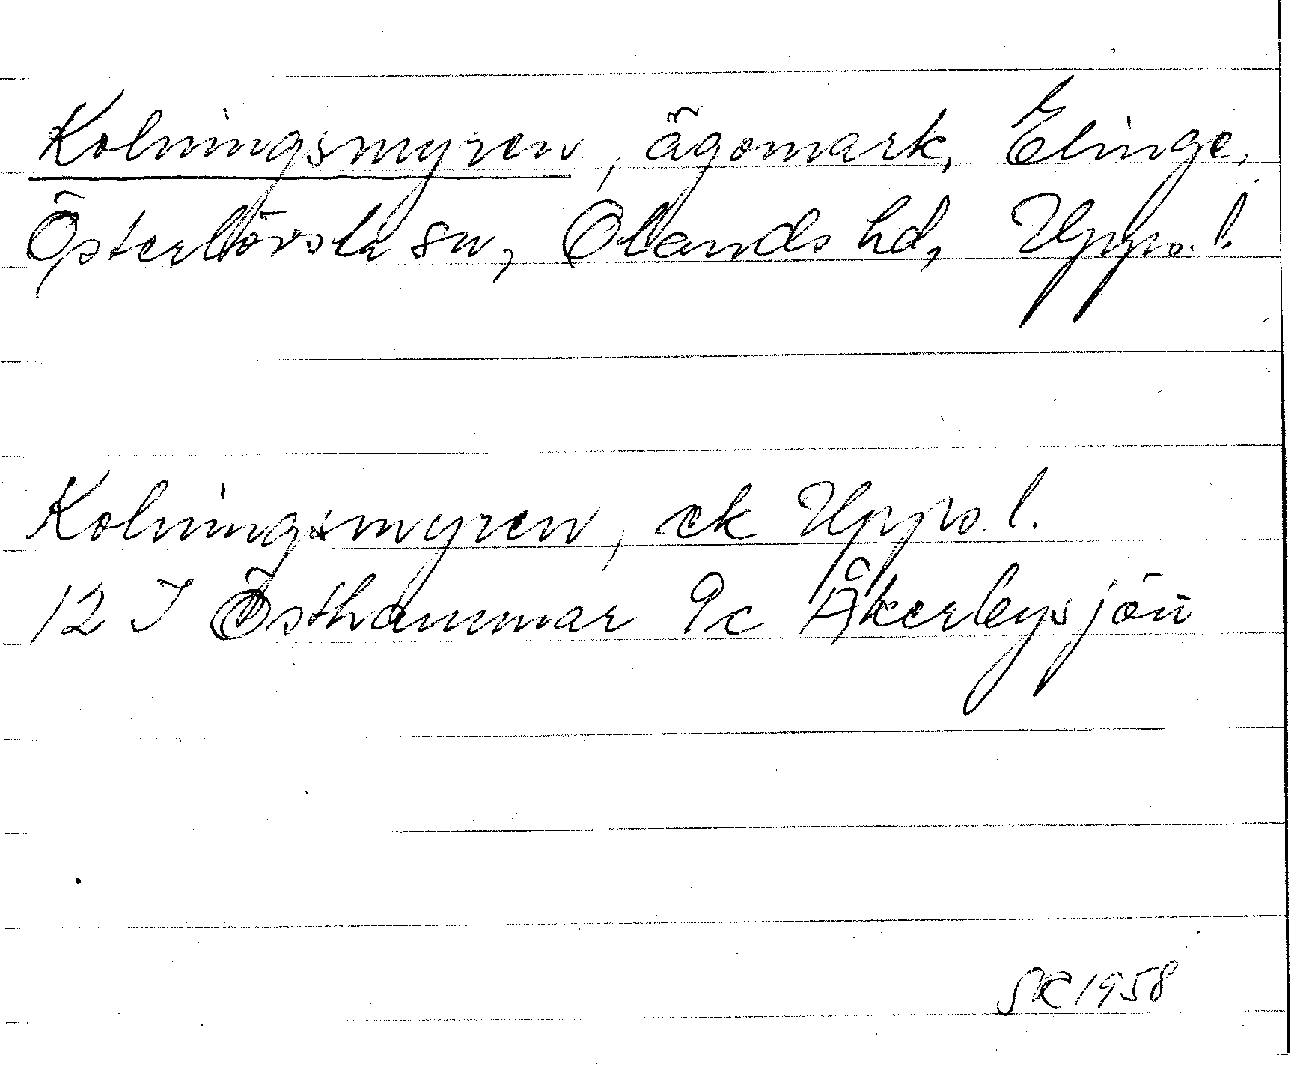 Kolningsmyren, ägomark, Elinge,
Österlövsta sn, Olands hd, Uppl.
Kolningsmyren, ek Uppl.
12 I Östhammar 9c Åkerbysjön
SK 1958